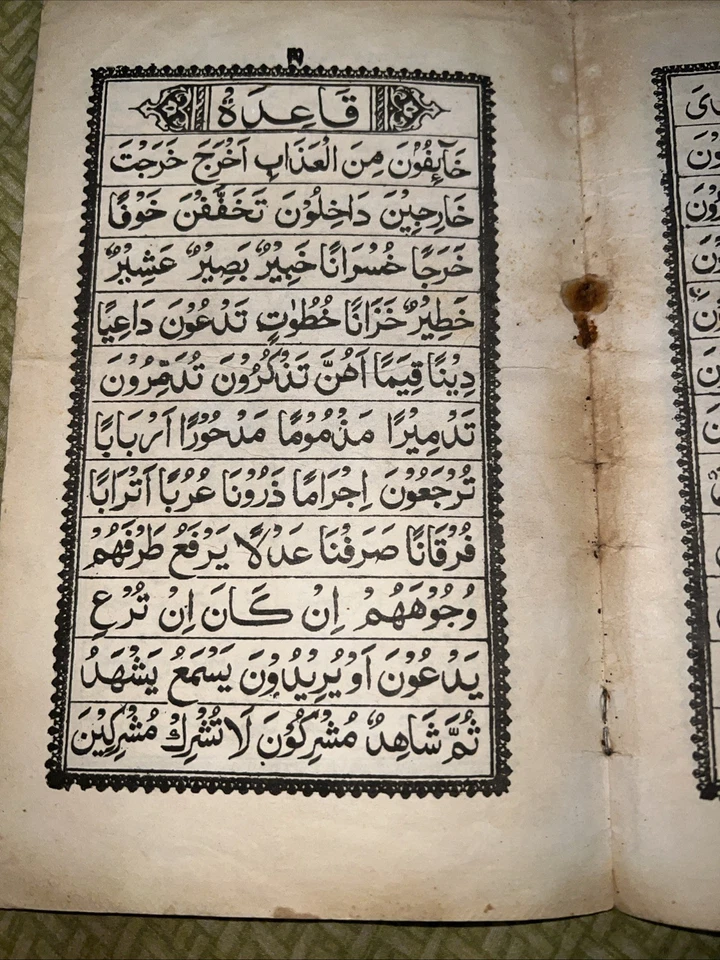 ٣
قَاعِدَهْ
خَآئِفُوْنَ مِنَ الْعَذَابِ اَخْرَجَ خَرَجْتَ
خَارِجِيْنَ دَاخِلُوْنَ تَخَفَّفْنَ خَوْفًا
خَرَجًا خُسْرَانًا خَبِيْرٌ بَصِيْرٌ عَشِيْرٌ
خَطِيْرٌ خَزَانًا خُطُوٰتٍ تَدْعُوْنَ دَاعِيًا
دِيْنًا قِيَمًا اَهُنَّ تَذْكُرُوْنَ تُدَمِّرُوْنَ
تَدْمِيْرًا مَذْمُوْمًا مَدْحُوْرًا اَرْبَابًا
تُرْجَعُوْنَ اِجْرَامًا ذَرُوْنَا عُرُبًا اَتْرَابًا
فُرْقَانًا صَرَفْنَا عَدْلًا يَرْفَعُ طَرْفَهُمْ
وُجُوْهَهُمْ اِنْ كَانَ اِنْ تُرْعِ
يَدْعُوْنَ اَوْ يُرِيْدُوْنَ يَسْمَعُ يَشْهَدُ
ثُمَّ شَاهِدٌ مُشْرِكُوْنَ لَا تُشْرِكْ مُشْرِكِيْنَ